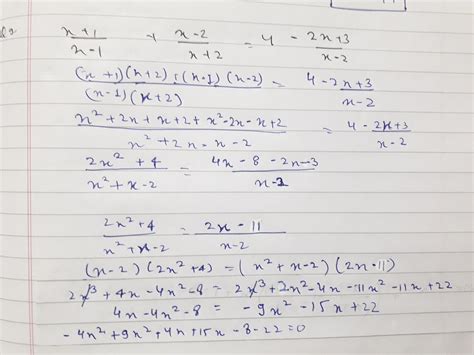 x+1/x-1 + x-2/x+2 = 4 - 2x+3/x-2
(x+1)(x+2)+(x-1)(x-2)/(x-1)(x+2) = 4-2x+3/x-2
x²+2x+x+2+x²-2x-x+2/x²+2x-x-2 = 4-2x+3/x-2
2x²+4/x²+x-2 = 4x-8-2x-3/x-2
2x²+4/x²+x-2 = 2x-11/x-2
(x-2)(2x²+4) = (x²+x-2)(2x-11)
2x³+4x-4x²-8 = 2x³+2x²-4x-11x²-11x+22
4x-4x²-8 = -9x²-15x+22
-4x²+9x²+4x+15x-8-22=0